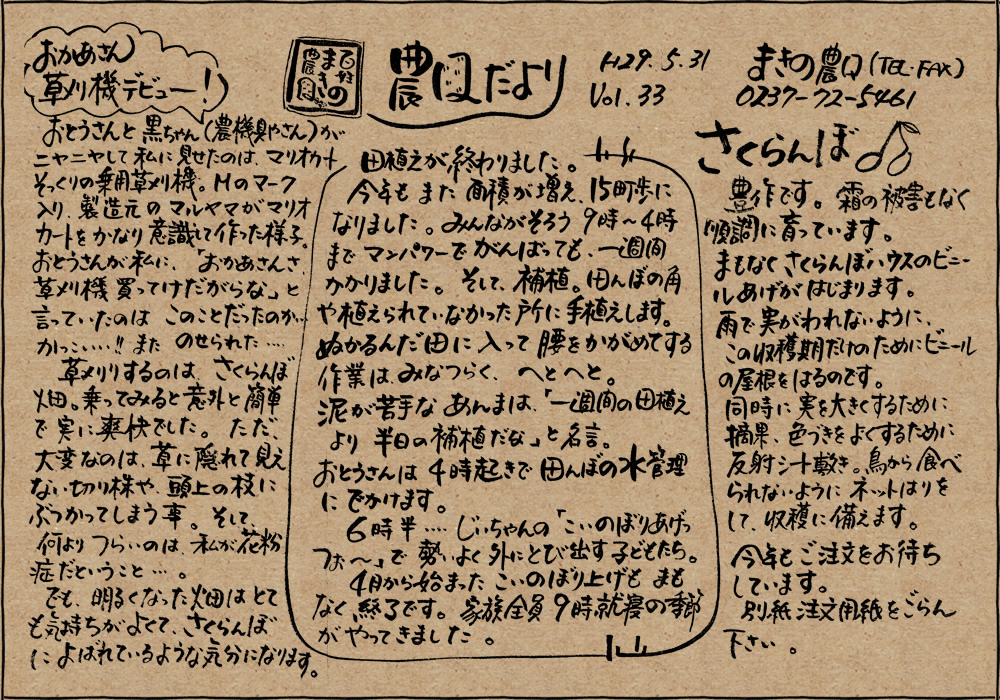 おかあさん
草刈機デビュー!
おとうさんと黒ちゃん(農機具やさん)が
ニヤニヤして私に見せたのは、マリオカート
そっくりの乗用草刈機。Mのマーク
入り、製造元のマルヤマがマリオ
カートをかなり意識して作った様子。
おとうさんが私に、「おかあさんさ
草刈機買ってけだがらな」と
言っていたのは このことだったのか…
かっこいい…!! また のせられた……
草メリリするのは、さくらんぼ
畑。乗ってみると意外と簡単
で実に爽快でした。ただ、
大変なのは、草に隠れて見え
ない切り株や、頭上の枝に
ぶつかってしまう事。そして、
何よりつらいのは、私が花粉
症だということ…。
でも、明るくなった畑はとて
も気持ちがよくて、さくらんぼ
によばれているような気分になります。
まきの
農園
農園だより
H29.5.31
Vol.33
まきの農園(TEL・FAX)
0237-72-5461
田植えが終わりました。
今年もまた面積が増え、15町歩に
なりました。みんながそろう9時~4時
までマンパワーでがんばっても、一週間
かかりました。そして、補植。田んぼの角
や植えられていなかった所に手植えします。
ぬかるんだ田に入って腰をかがめてする
作業は、みなつらく、へとへと。
泥が苦手なあんまは、「一週間の田植え
より 半日の補植だな」と名言。
おとうさんは4時起きで田んぼの水管理
にでかけます。
6時半…. じいちゃんの「こいのぼりあげっ
つぉ~」で勢いよく外にとび出す子どもたち。
4月から始まったこいのぼり上げもまも
なく終了です。家族全員9時就寝の季節
がやってきました。
さくらんぼ
豊作です。霜の被害もなく
順調に育っています。
まもなくさくらんぼハウスのビニー
ルあげがはじまります。
雨で実がわれないように、
この収穫期だけのためにビニール
の屋根をはるのです。
同時に実を大きくするために
摘果、色づきをよくするために
反射シート敷き。鳥から食べ
られないようにネットはりを
して、収穫に備えます。
今年もご注文をお待ち
しています。
別紙注文用紙をごらん
下さい。